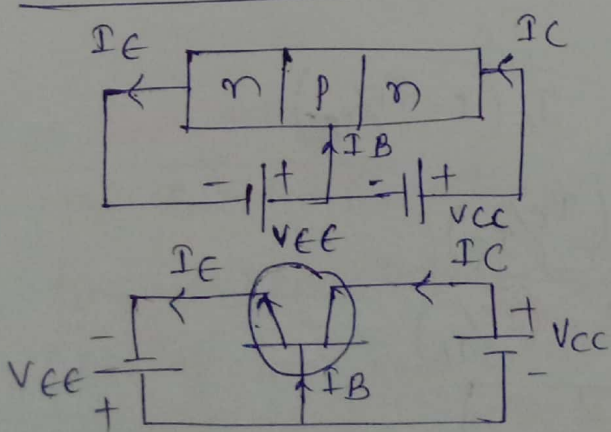 IE IC
n p n
IB
- + - +
VEE VCC
IE IC
- + VCC
VEE IB -
+